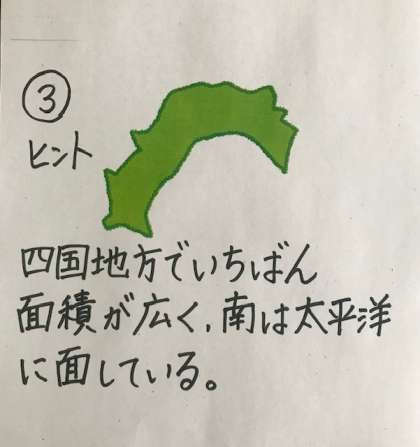 ③
ヒント
四国地方でいちばん
面積が広く,南は太平洋
に面している。